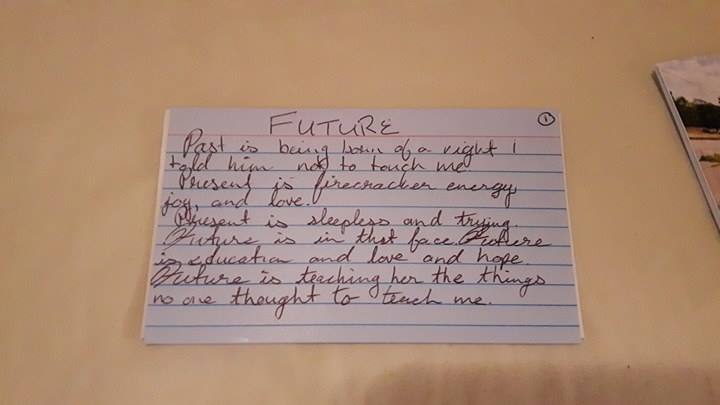 FUTURE
1
Past is being born of a night I
told him not to touch me.
Present is firecracker energy,
joy, and love.
Present is sleepless and trying.
Future is in that face. Future
is education and love and hope.
Future is teaching her the things
no one thought to teach me.